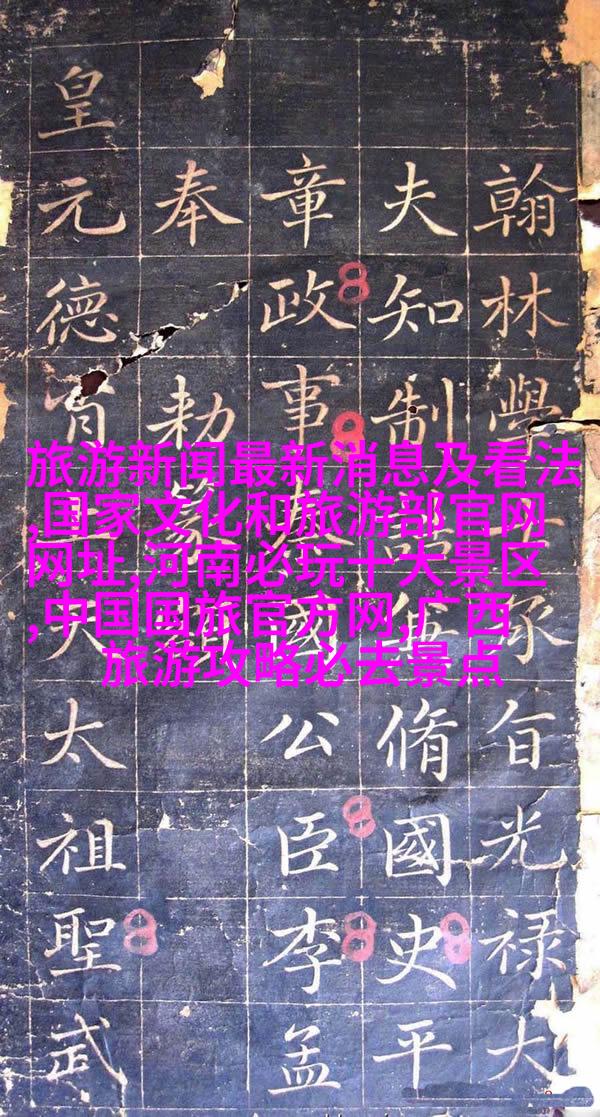 旅游新闻最新消息及看法
,国家文化和旅游部官网
网址,河南必玩十大景区
,中国国旅官方网,广西
旅游攻略必去景点
翰林學士承旨光禄大
夫知制誥脩國史平
章政事秦國公臣李孟
奉勅篆
皇元德太祖聖武